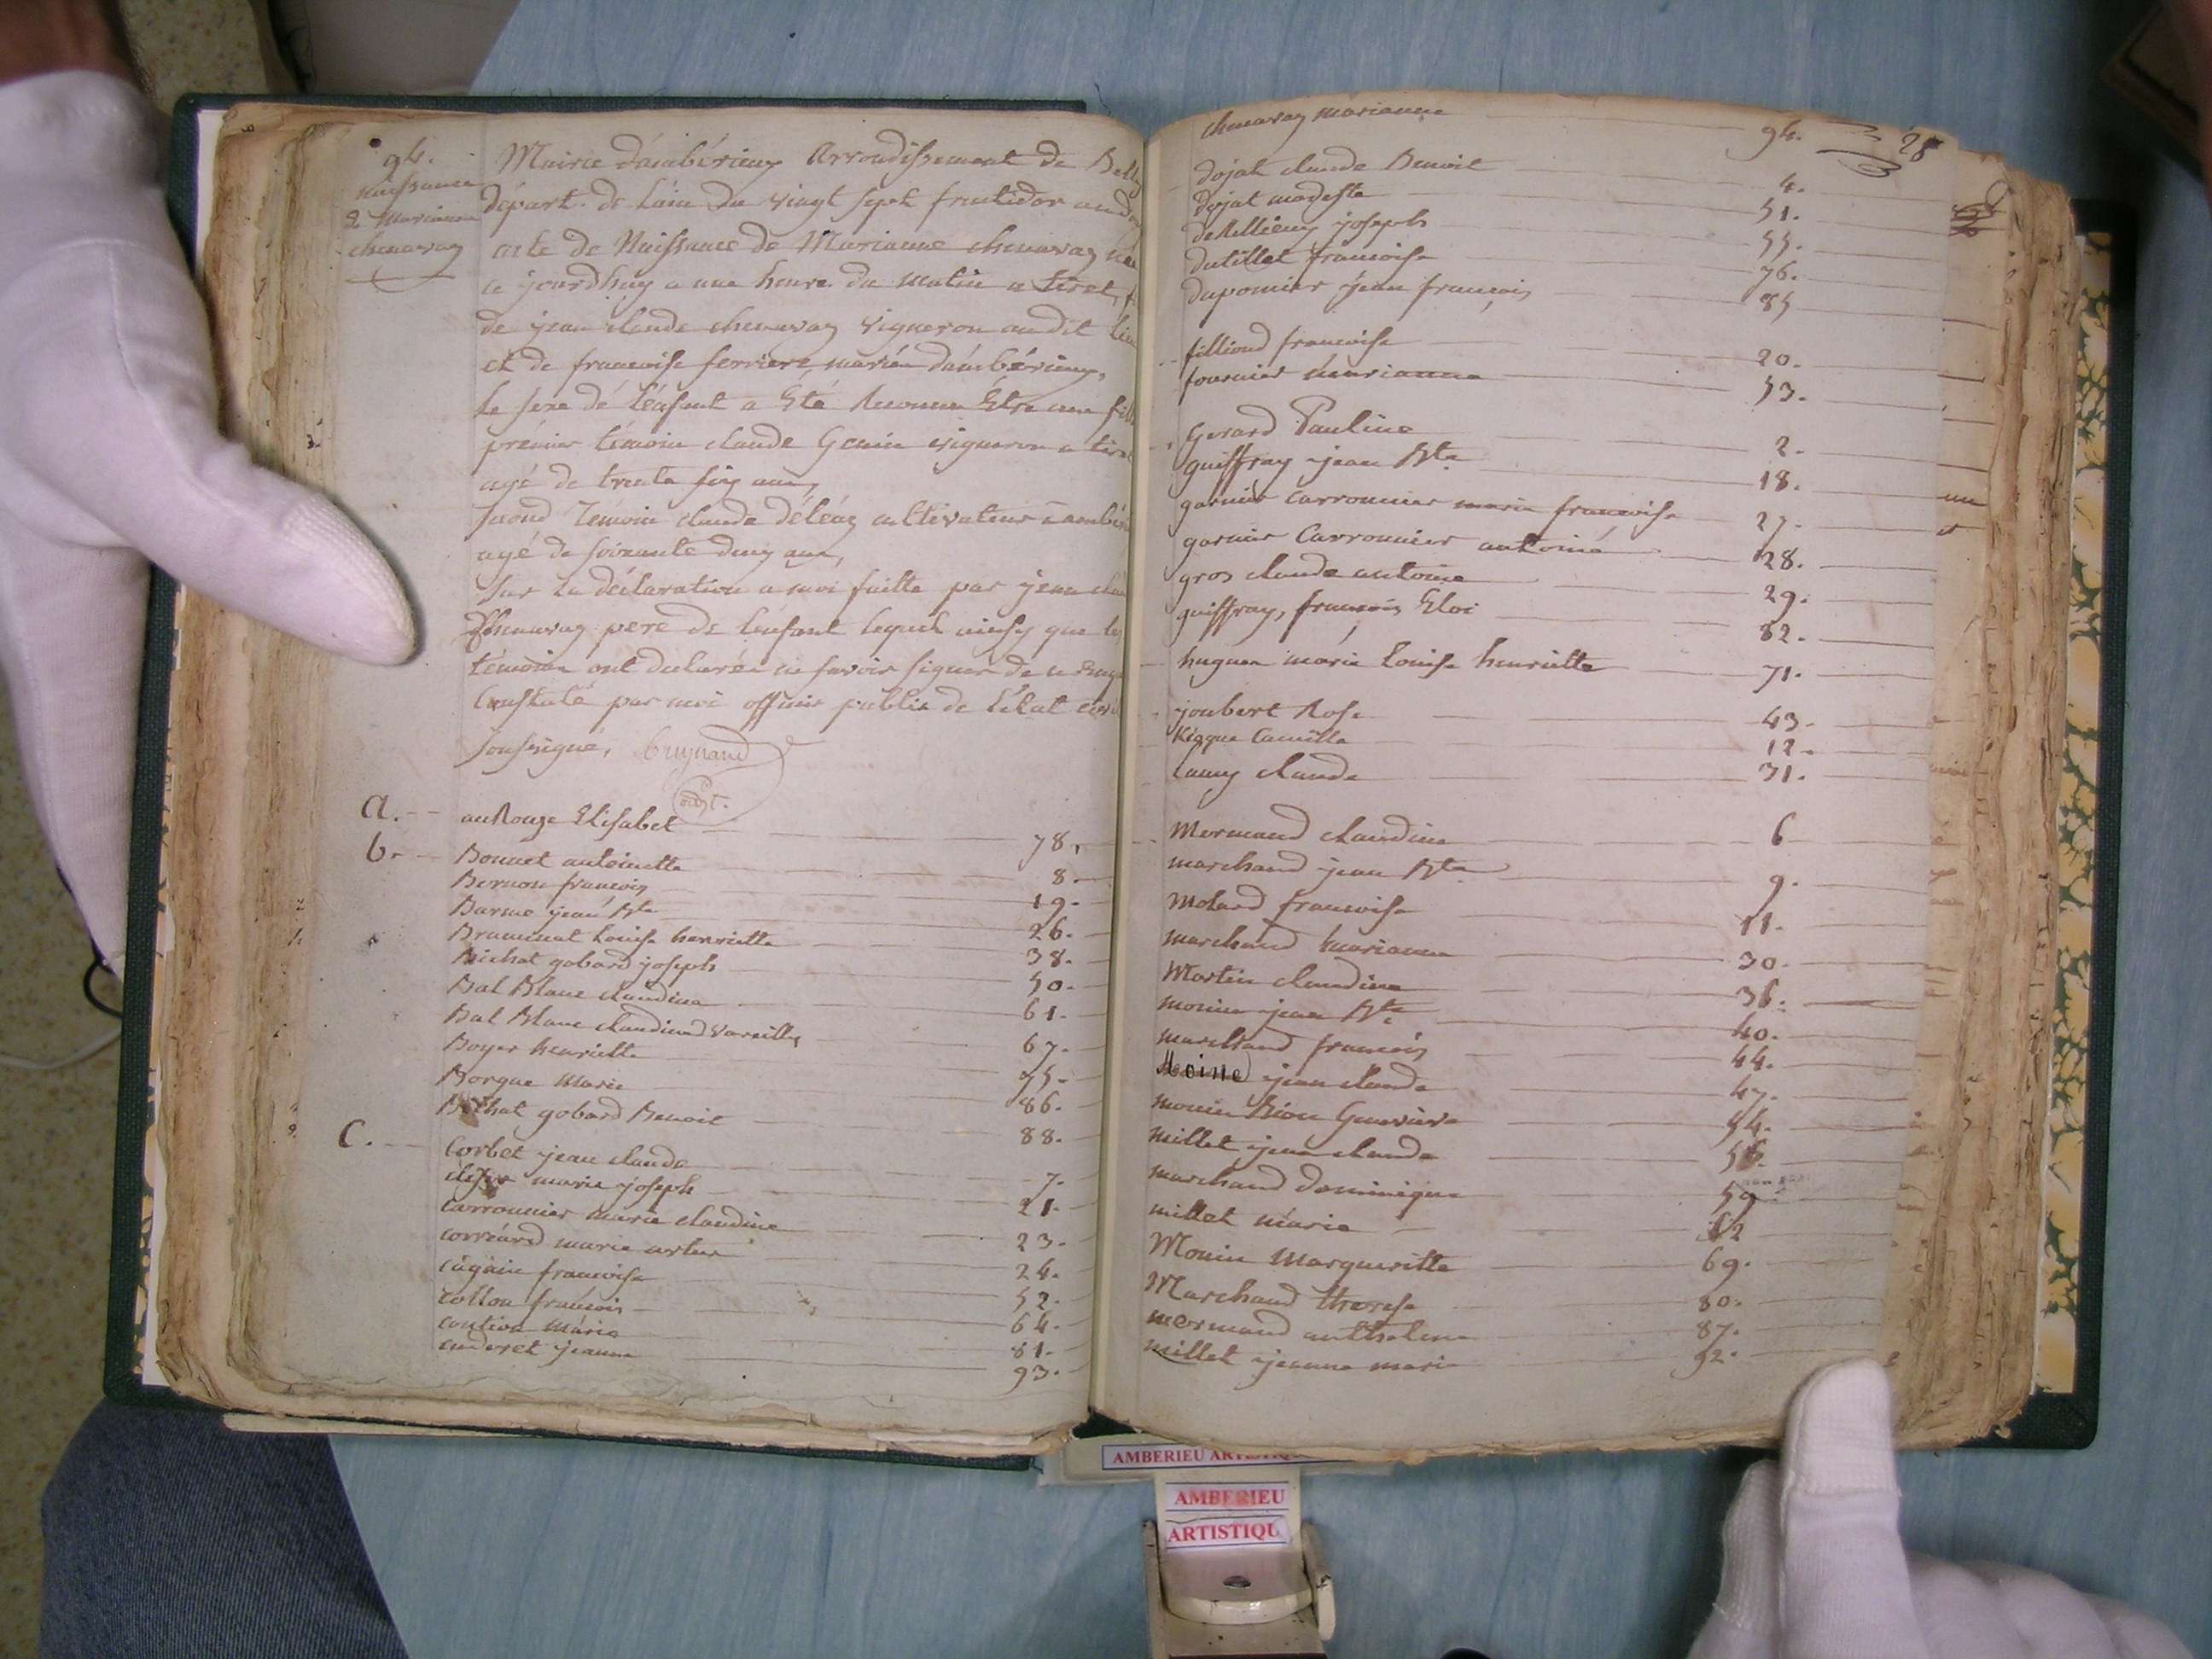 94.
Naissance
de Marianne
chenavay
Mairie d'ambérieux Arrondissement de Belley
départ. de L'ain du vingt sept fructidor an
acte de Naissance de Marianne chenavay née
ce jourdhuy a une heure du matin a tiret,
de jean claude chenavay vigneron au dit lieu
et de francoise ferriere mariés d'ambérieux,
le sexe de l'enfant a Eté Reconnu Etre une fille
prémier témoin claude Genin vigneron a tiret
agé de trente six ans,
second témoin claude déléaz cultivateur à ambérieux
agé de soixante deux ans,
sur la déclaration a moi faitte par jean claude
Chenavay pere de l'enfant lequel ainsy que les
témoins ont declarés ne savoir signer de ce enquis
Constaté par moi officier public de l'état civil
soussigné,
a. auRouge Elisabet 78.
b. Bonnet antoinette 8.
Bernon francois 19.
Barme jean Bte 26.
Brunnuat Louise henriette 38.
Bichat gobard joseph 50.
Bal Blanc claudine 61.
Bal Blanc claudine d vareilles 67.
Boyer henriette 75.
Borgue Marie 86.
Bichat gobard Benoit 88.
C. Corbet jean claude 7.
marie joseph 21.
Carronnier marie claudine 23.
corréard marie 24.
cagnin francoise 52.
collon francois 64.
marie 81.
cuderet jeanne 93.
chenavay marianne 94.
28
dojat claude Benoit 4.
dojat modeste 51.
deRillieux joseph 55.
dutillet francoise 76.
dupomier jean francois 85
filliond francoise 20.
fournier marianne 53.
Gerard Pauline 2.
guiffray jean Bte 18.
garnier carronnier marie francoise 27.
garnier Carronnier antoine 28.
gros claude antoine 29.
guiffray, francois Eloi 82.
hugues marie Louise henriette 71.
joubert Rose 43.
Kiaque Camille 12.
Lamy claude 31.
Mermand claudine 6
marchand jean Bte 9.
Molard francoise 11.
marchand marianne 30.
Martin claudine 36.
monin jean Bte 40.
marchand francois 44.
Moine jean claude 47.
monin Bion Genevieve 54.
millet jean claude 56.
marchand dominique 59
millet marie 62
Monin Margueritte 69.
Marchand therese 80.
mermand anthelme 87.
millet jeanne marie 92.
AMBERIEU
AMBERIEU
ARTISTIQU